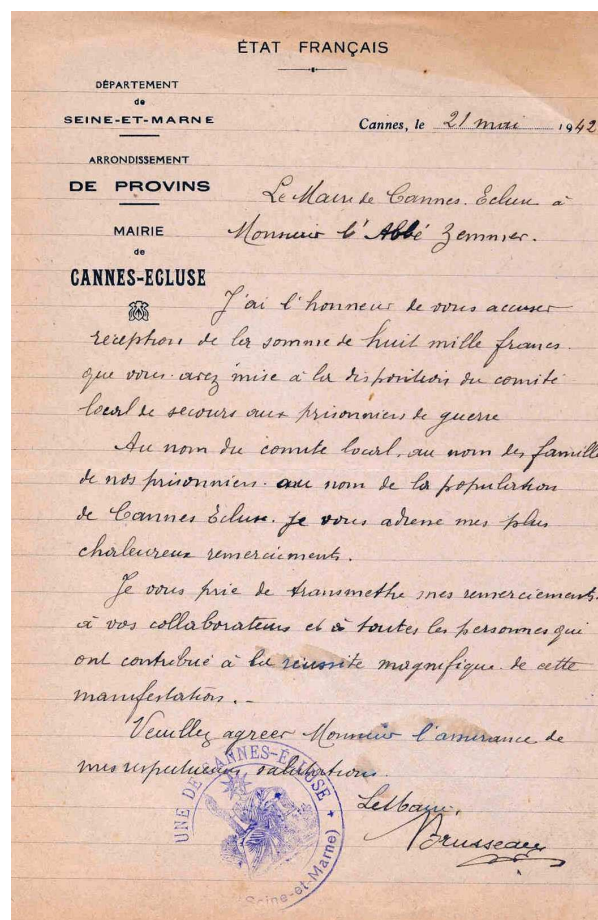 ÉTAT FRANÇAIS
DÉPARTEMENT
de
SEINE-ET-MARNE
Cannes, le 21 mai 1942
ARRONDISSEMENT
DE PROVINS
MAIRIE
de
CANNES-ECLUSE
Le Maire de Cannes. Ecluse à
Monsieur l'Abbé Zemmer.
J'ai l'honneur de vous accuser
réception de la somme de huit mille francs.
que vous avez mise à la disposition du comité
local de secours aux prisonniers de guerre
Au nom du comité local, au nom des famille
de nos prisonniers. au nom de la population
de Cannes Ecluse. je vous adresse mes plus
chaleureux remerciements.
Je vous prie de transmettre mes remerciements.
à vos collaborateurs et à toutes les personnes qui
ont contribué à la réussite magnifique de cette
manifestation. -
Veuillez agréer Monsieur l'assurance de
mes respectueuses salutations.
Le Maire,
Brusseau
UNE DE CANNES-ÉCLUSE
(Seine-et-Marne)